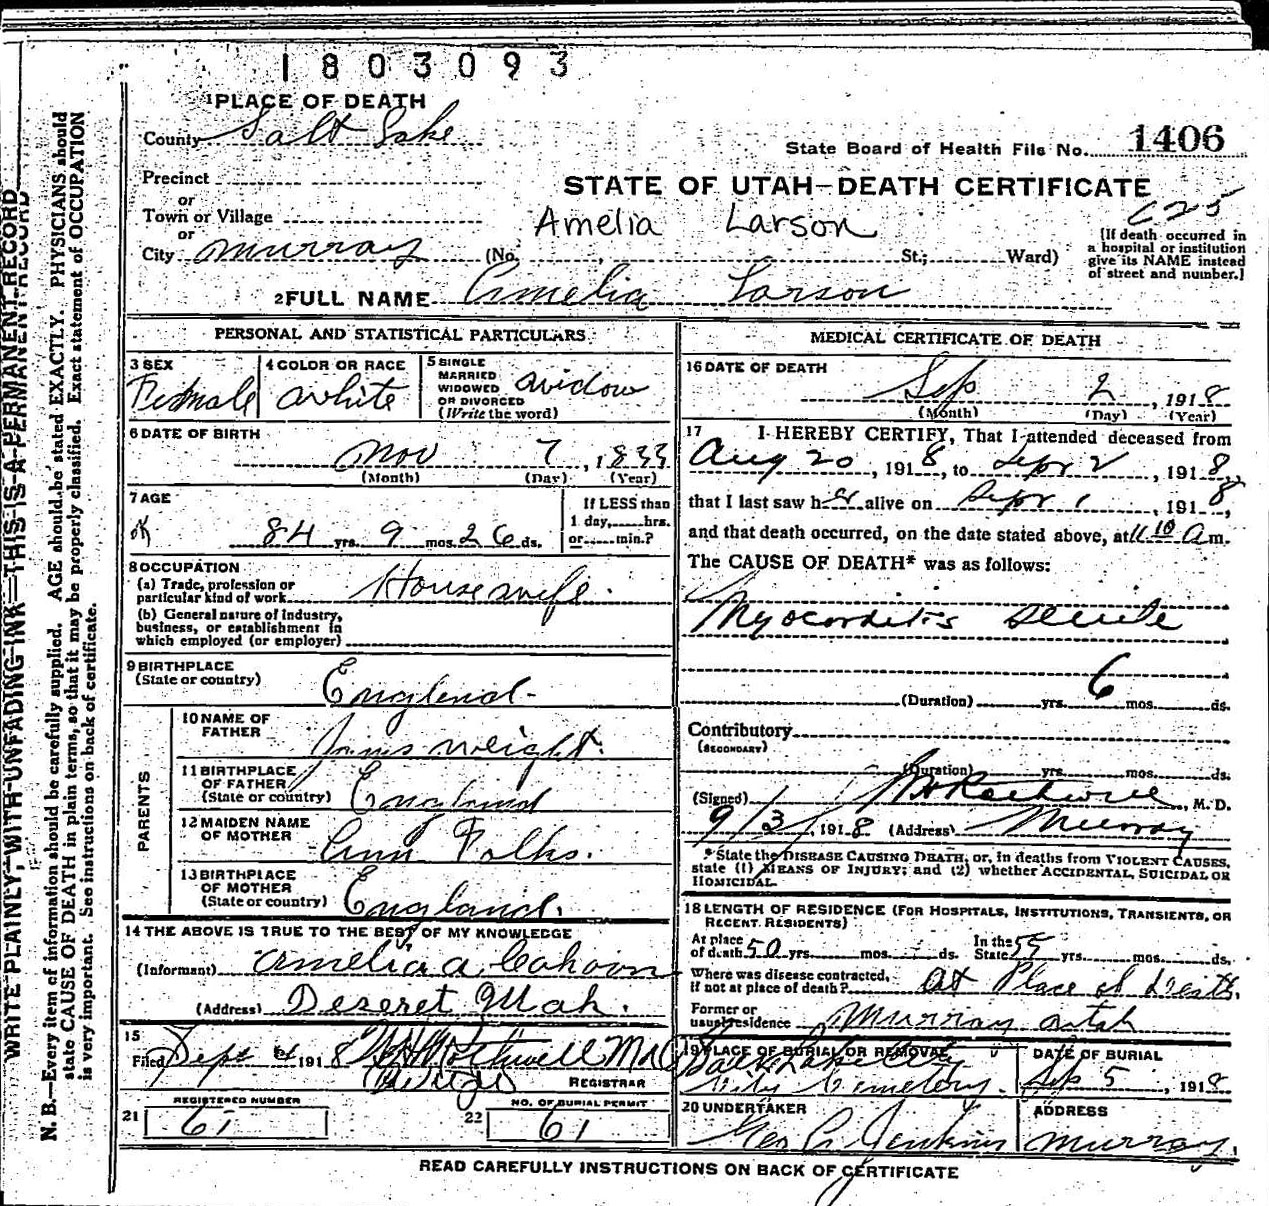 1803093
1 PLACE OF DEATH
County Salt Lake
State Board of Health File No. 1406
Precinct
STATE OF UTAH—DEATH CERTIFICATE
or
Town or Village
Amelia Larson
C25
or
City Murray (No. , St.; Ward)
[If death occurred in
a hospital or institution
give its NAME instead
of street and number.]
2 FULL NAME Amelia Larson
PERSONAL AND STATISTICAL PARTICULARS
3 SEX
Female
4 COLOR OR RACE
White
5 SINGLE
MARRIED
WIDOWED
OR DIVORCED
(Write the word)
Widow
6 DATE OF BIRTH
Nov 7, 1833
(Month) (Day) (Year)
7 AGE
84 yrs. 9 mos. 26 ds.
If LESS than
1 day, hrs.
or min.?
8 OCCUPATION
(a) Trade, profession or
particular kind of work Housewife.
(b) General nature of industry,
business, or establishment in
which employed (or employer)
9 BIRTHPLACE
(State or country)
England
PARENTS
10 NAME OF
FATHER
Wright.
11 BIRTHPLACE
OF FATHER
(State or country) England
12 MAIDEN NAME
OF MOTHER
Ann Folks.
13 BIRTHPLACE
OF MOTHER
(State or country) England.
14 THE ABOVE IS TRUE TO THE BEST OF MY KNOWLEDGE
(Informant) Amelia A. Cahoon
(Address) Deseret Utah.
15
Filed Sept 4 1918
REGISTRAR
REGISTERED NUMBER
21 61
NO. OF BURIAL PERMIT
22 61
MEDICAL CERTIFICATE OF DEATH
16 DATE OF DEATH
Sep 2, 1918
(Month) (Day) (Year)
17 I HEREBY CERTIFY, That I attended deceased from
Aug 20, 1918, to Sept 2, 1918
that I last saw her alive on Sept 1, 1918,
and that death occurred, on the date stated above, at 11 10 A m.
The CAUSE OF DEATH* was as follows:
Myocorditis Senile
6
(Duration) yrs. mos. ds.
Contributory
(SECONDARY)
(Duration) yrs. mos. ds.
(Signed) , M. D.
9/3/, 1918 (Address) Murray
* State the DISEASE CAUSING DEATH, or, in deaths from VIOLENT CAUSES,
state (1) MEANS OF INJURY; and (2) whether ACCIDENTAL, SUICIDAL OR
HOMICIDAL
18 LENGTH OF RESIDENCE (FOR HOSPITALS, INSTITUTIONS, TRANSIENTS, OR
RECENT RESIDENTS)
At place
of death 50 yrs. mos. ds. In the
State yrs. mos. ds.
Where was disease contracted,
if not at place of death? At Place of Death.
Former or
usual residence Murray Utah
19 PLACE OF BURIAL OR REMOVAL
Salt Lake City
City Cemetery.
DATE OF BURIAL
Sep 5, 1918
20 UNDERTAKER
Geo Jenkins
ADDRESS
Murray.
READ CAREFULLY INSTRUCTIONS ON BACK OF CERTIFICATE
WRITE PLAINLY, WITH UNFADING INK—THIS IS A PERMANENT RECORD
N. B.—Every item of information should be carefully supplied. AGE should be stated EXACTLY. PHYSICIANS should
state CAUSE OF DEATH in plain terms, so that it may be properly classified. Exact statement of OCCUPATION
is very important. See instructions on back of certificate.